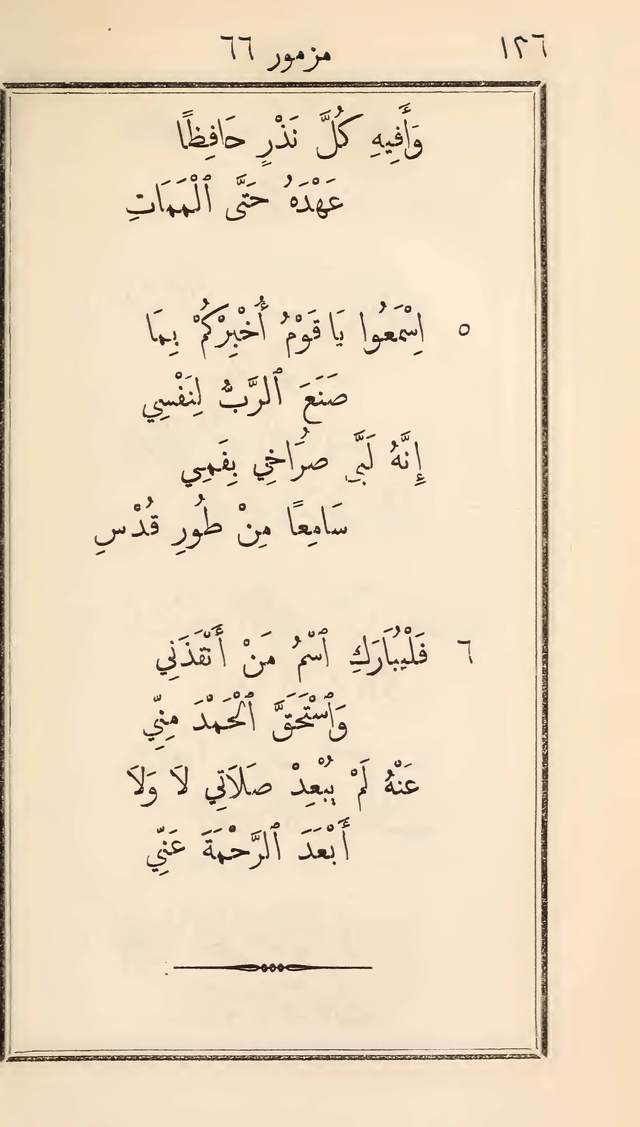 ١٢٦ مزمور ٦٦
وَأَفِيهِ كُلَّ نَذْرٍ حَافِظًا
عَهْدَهُ حَتَّى ٱلْمَمَاتِ
٥ اِسْمَعُوا يَا قَوْمُ أُخْبِرْكُمْ بِمَا
صَنَعَ ٱلرَّبُّ لِنَفْسِي
إِنَّهُ لَبَّى صُرَاخِي بِفَمِي
سَامِعًا مِنْ طُورِ قُدْسِ
٦ فَلْيُبَارَكِ ٱسْمُ مَنْ أَنْقَذَنِي
وَٱسْتَحَقَّ ٱلْحَمْدَ مِنِّي
عَنْهُ لَمْ يُبْعِدْ صَلَاتِي لَا وَلَا
أَبْعَدَ ٱلرَّحْمَةَ عَنِّي